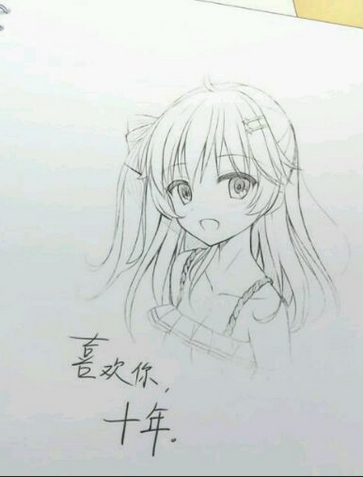 喜欢你，
十年。